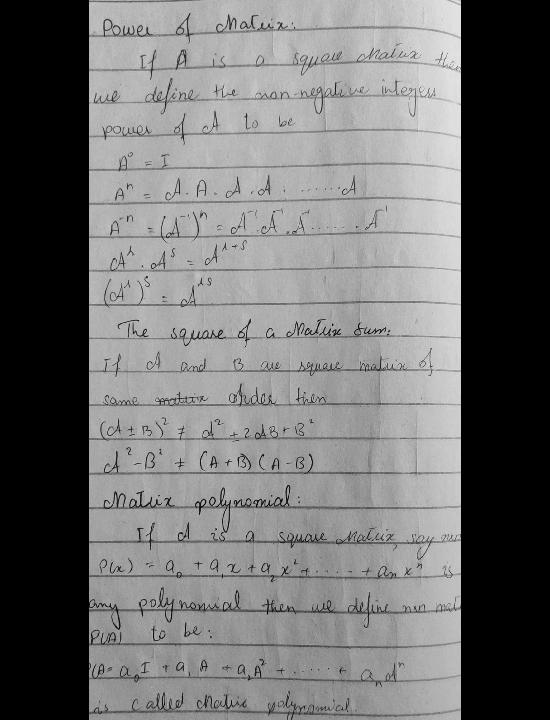 Power of Matrix:
If A is a square Matrix then
we define the non-negative integers
power of A to be
A⁰ = I
Aⁿ = A.A.A.A.......A
A⁻ⁿ = (A⁻¹)ⁿ = A⁻¹.A⁻¹.A⁻¹.......A⁻¹
Aʳ.Aˢ = Aʳ⁺ˢ
(Aʳ)ˢ = Aʳˢ
The square of a Matrix Sum:
If A and B are square matrix of
same order then
(A ± B)² ≠ A² ± 2AB + B²
A² - B² ≠ (A + B)(A - B)
Matrix polynomial:
If A is a square Matrix, say
P(x) = a₀ + a₁x + a₂x² + ..... + aₙxⁿ is
any polynomial then we define nxn mat
P(A) to be:
P(A = a₀I + a₁A + a₂A² + ..... + aₙAⁿ
is called Matrix polynomial.